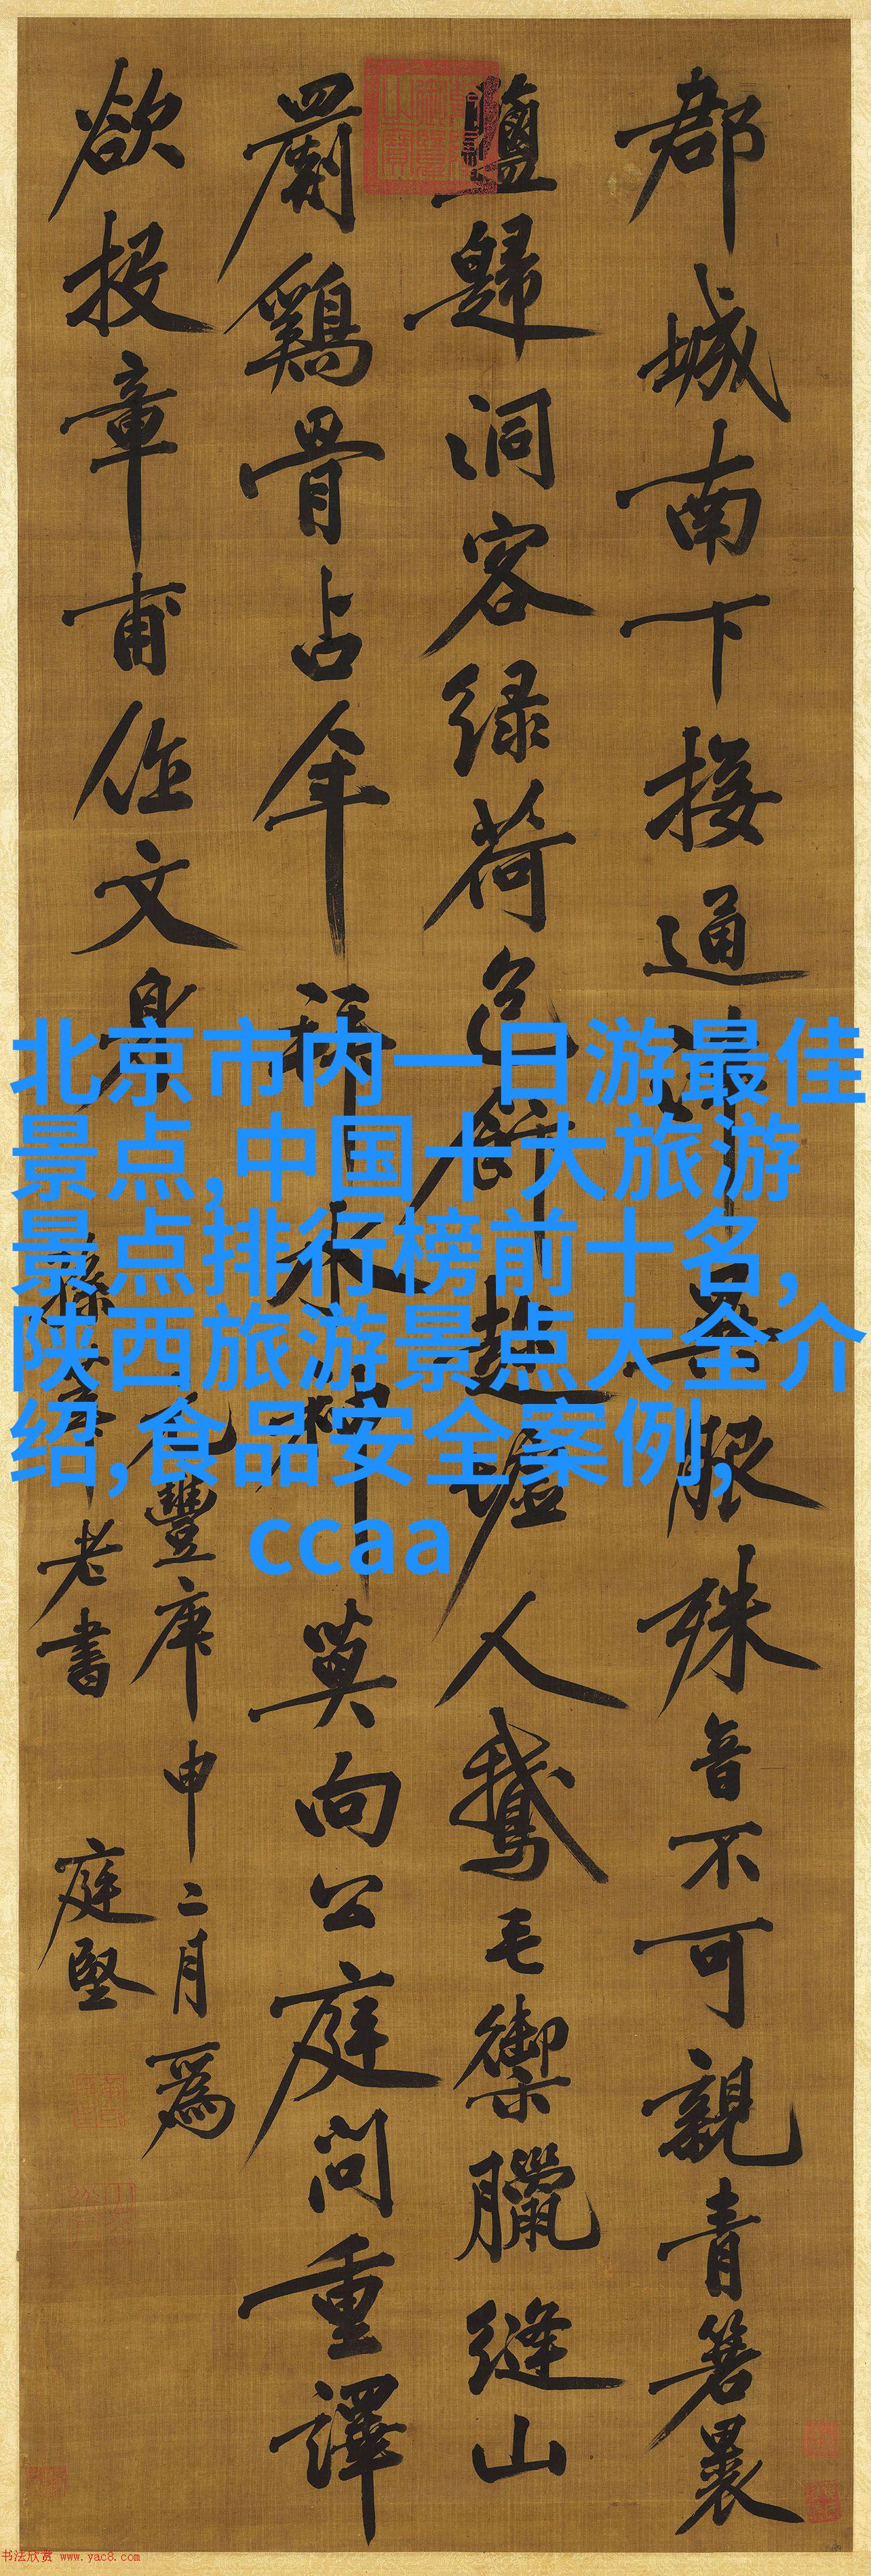 郡城南下接通津異服殊音不可親青箬裹
鹽歸洞客绿荷包飰趁墟人鵝毛御臘缝山
罽鷄骨占年拜水神莫向公庭問重譯
欲投章甫作文身
元豐庚申二月爲
孫莘老書 庭堅
北京市内一日游最佳
景点,中国十大旅游
景点排行榜前十名,
陕西旅游景点大全介
绍,食品安全案例,
ccaa
书法欣赏 www.yac8.com